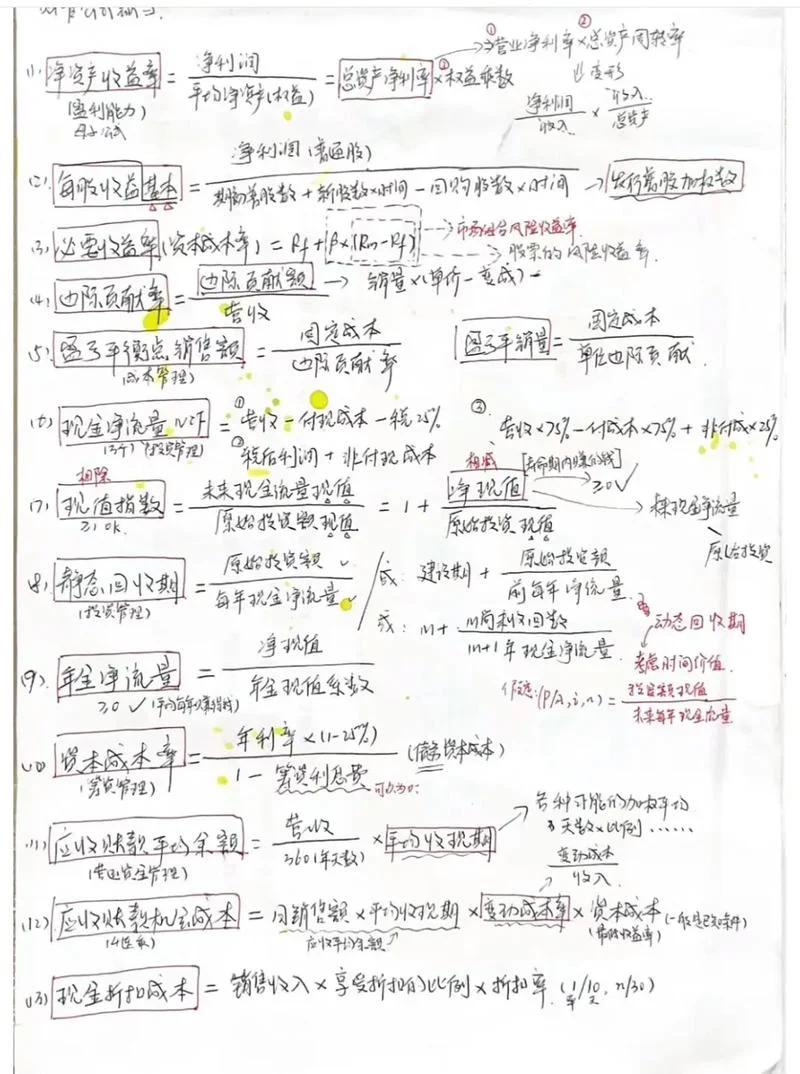 ① ②
营业净利率×总资产周转率
(1) 净资产收益率 = 净利润 / 平均净资产(权益) = 总资产净利率 × 权益乘数
↓变形
(盈利能力)
净利润/收入 × 收入/总资产
净利润(普通股)
(2) 每股收益基本 = 期初普股数 + 新股数×时间 - 回购股数×时间 → 发行普股加权数
(3) 必要收益率(资本成本率) = Rf + β×(Rm-Rf) → 市场组合风险收益率
股票的风险收益率
(4) 边际贡献率 = 边际贡献额 / 营收 → 销量×(单价-变成)
(5) 盈亏平衡点销售额 = 固定成本 / 边际贡献率 盈亏平销量 = 固定成本 / 单位边际贡献
(成本管理)
(6) 现金净流量NCF = ①营收-付现成本-税25% ③营收×75%-付成本×75%+非付成×25%
(3个)(投资管理) ②税后利润+非付现成本
相除 相减 [寿命期内赚的钱]
(7) 现值指数 = 未来现金流量现值 / 原始投资额现值 = 1 + 净现值 / 原始投资现值 ≥0√
≥1 ok 现金净流量
原始投资
(8) 静态回收期 = 原始投资额√ / 每年现金净流量√ 或: 建设期 + 原始投资额 / 前每年净流量
(投资管理) 或: M + M尚未收回数 / M+1年现金净流量
动态回收期
考虑时间价值
(9) 年金净流量 = 净现值 / 年金现值系数
≥0√
(P/A,i,n) = 投资额现值 / 未来每年现金流量
(10) 资本成本率 = 年利率×(1-25%) / 1-筹资利息费 (债务资本成本)
(筹资管理) 可以为0
各种可能的加权平均
天数×比例……
(11) 应收账款平均余额 = 营收 / 360(年天数) × 平均收现期
(营运资金管理)
变动成本/收入
(12) 应收账款机会成本 = 日销售额×平均收现期×变动成本率×资本成本(一般是已知条件)
应收平均余额 (最低收益率)
(13) 现金折扣成本 = 销售收入×享受折扣的比例×折扣率 (1/10, n/30)